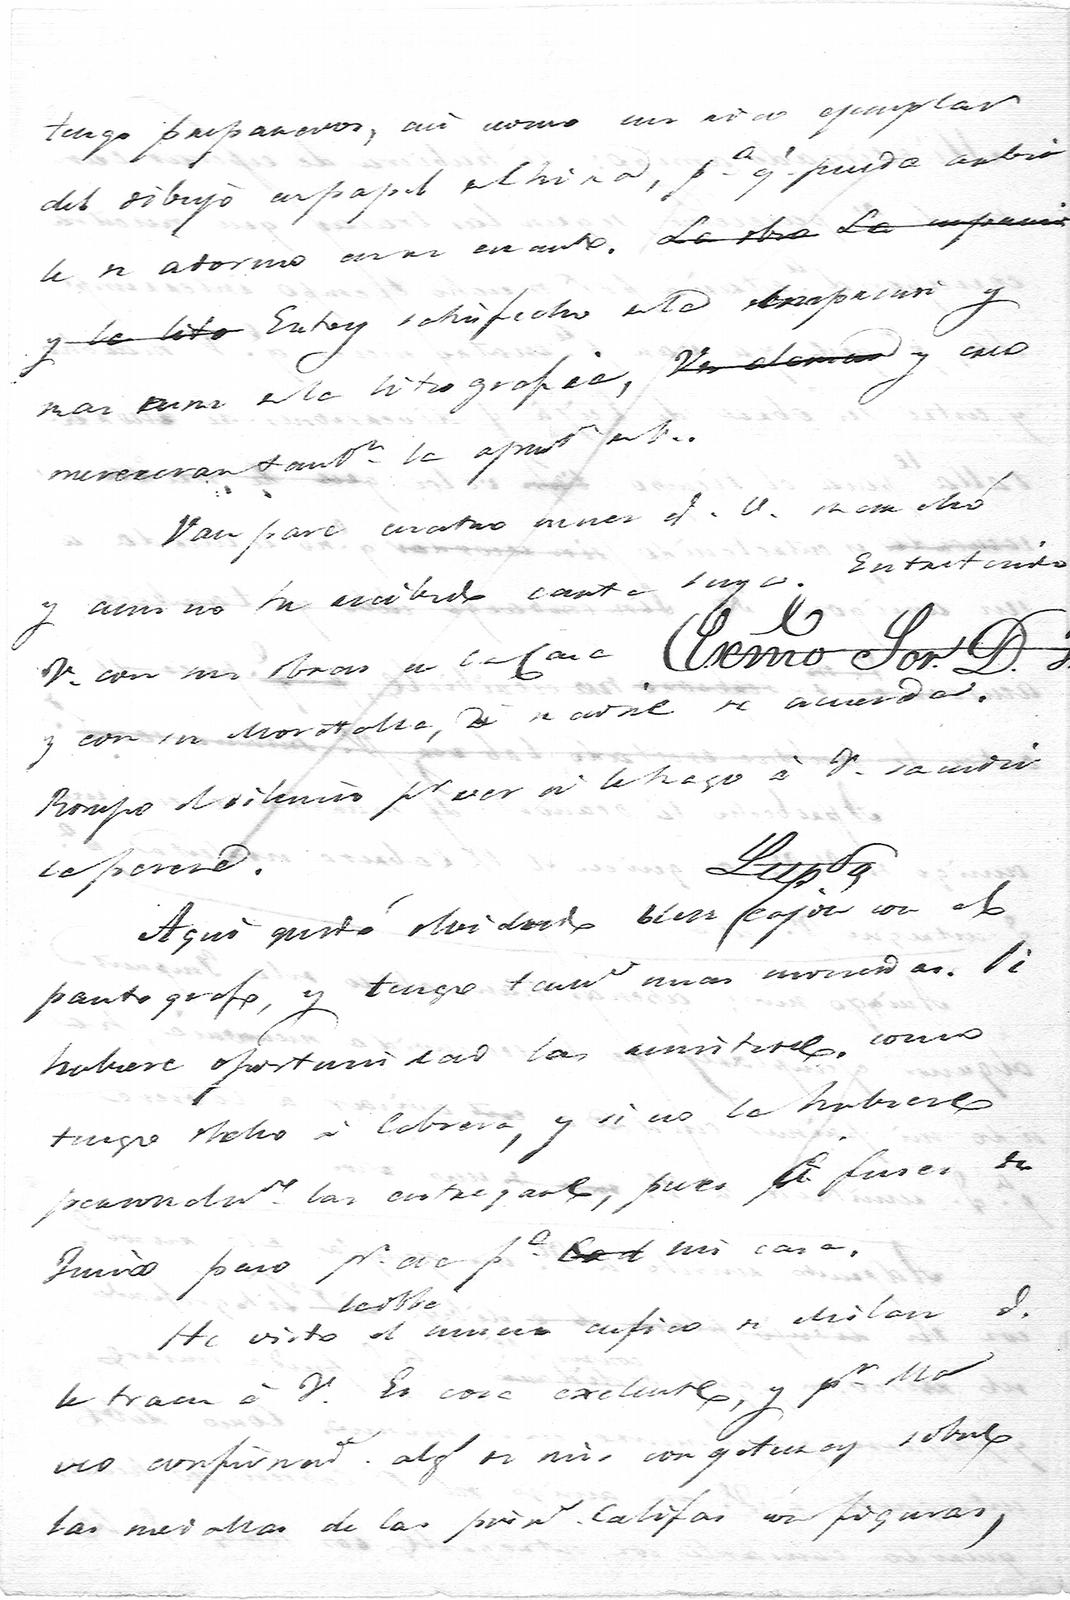 tengo preparados, asi como un rico ejemplar
del dibujo en papel de China, p.a q.e pueda
de adorno en un cuadro. La obra La impresion
y la lito Estoy satisfecho de la impresion y
mas aun de la litografia, y creo
mereceran tamb.n la aprob.n de V.
Van para cuatro meses q. V. marchó
y aun no he recibido carta suya. Entretenido
V. con sus obras de la Casa Exmo Sor. D.
y con su de nadie se acuerda.
Rompo el silencio p.r ver si le hago á V. sacudir
la pereza.
Lupda
Aqui quedó olvidado bien cajon con el
pantografo, y tengo tam.n unas monedas. Si
hubiere oportunidad las remitiré, como
tengo dicho á Cabrera, y si no la hubiere
personalm.te las entregaré, pues á fines de
Junio paso p.r aca p.a mi casa.
He visto el cufico de Milan q.
le traen á V. Es cosa excelente, y p.r
veo confirmad.s alg.s de mis congeturas sobre
las medallas de los prim.s Califas con figuras,